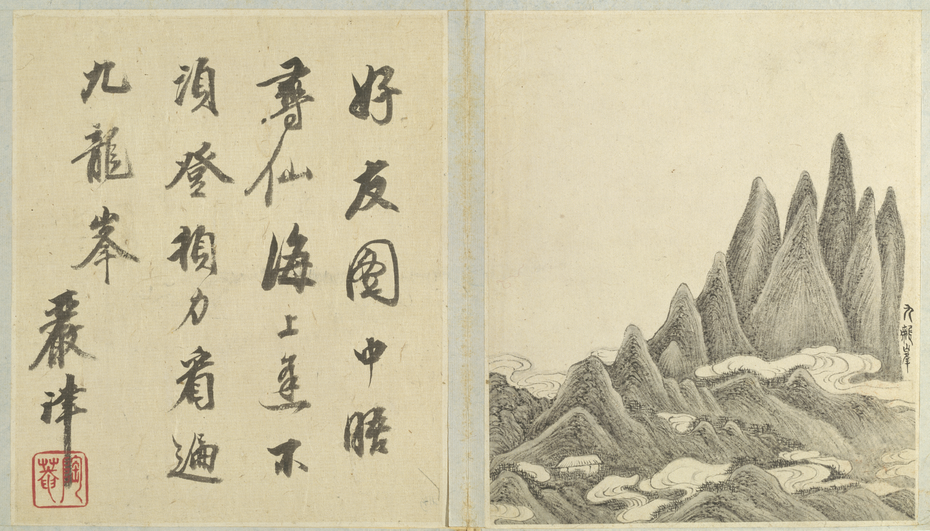 好友圖中晤
尋仙海上逢不
須登頓力看遍
九龍峯
嚴津
陶菴
九龍峰